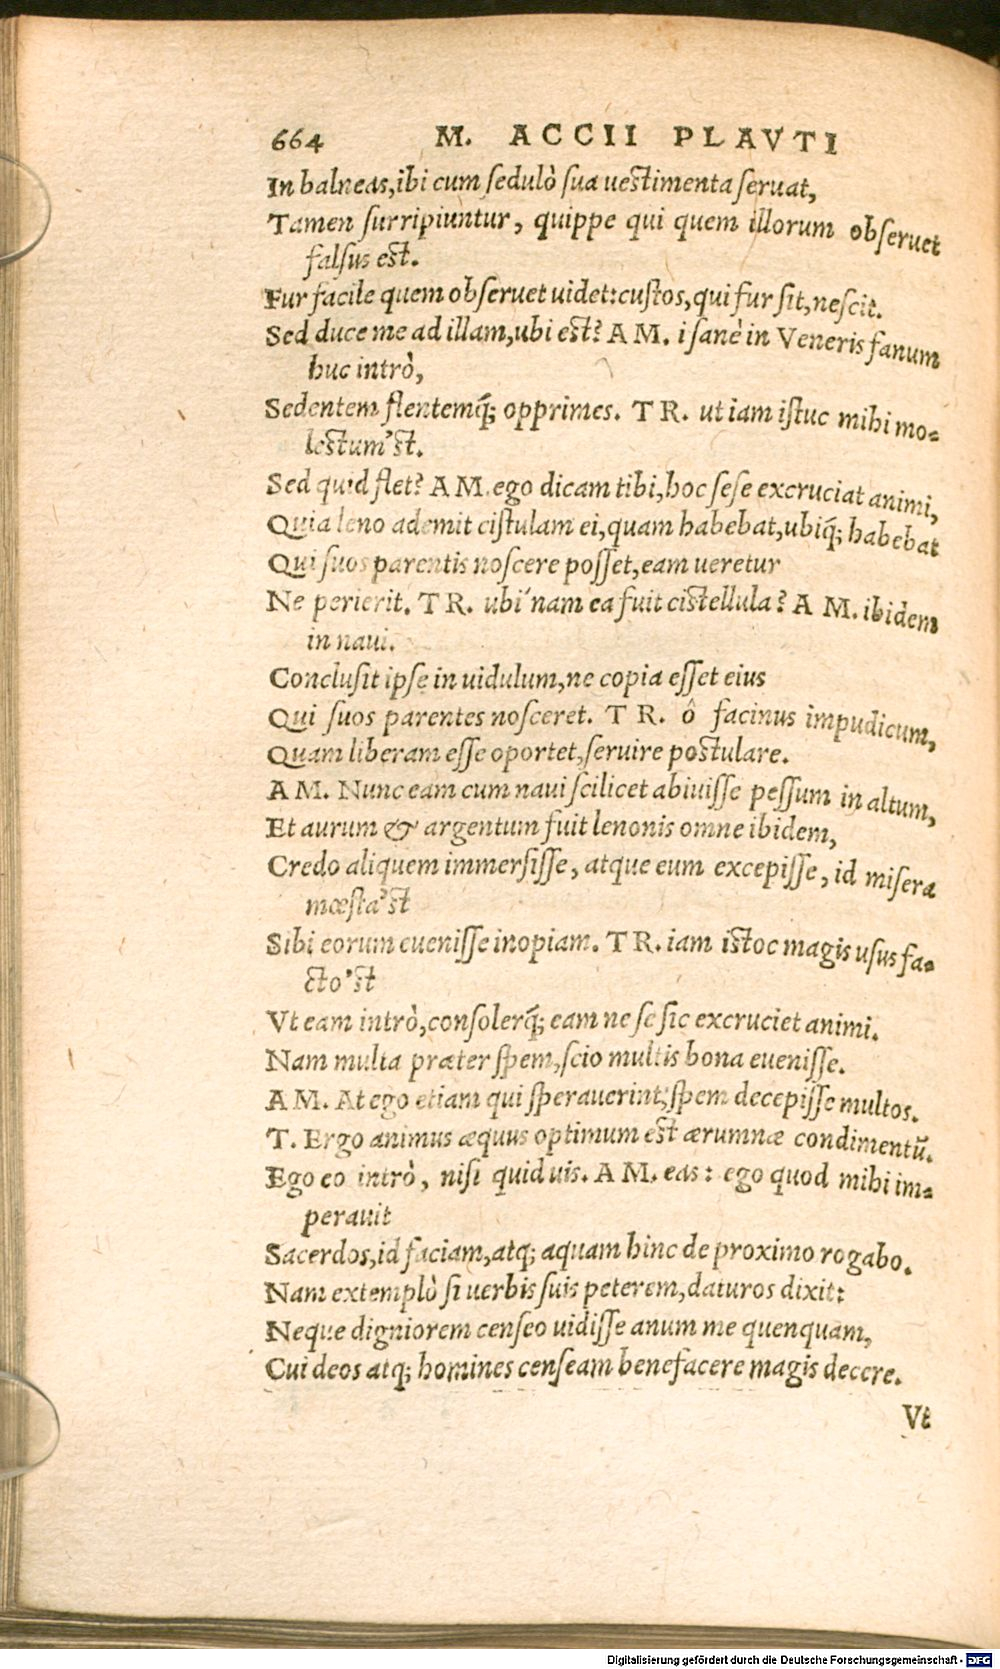 664 M. ACCII PLAVTI
In balneas,ibi cum ſedulò ſua ueſtimenta ſeruat,
Tamen ſurripiuntur, quippe qui quem illorum obſeruet
falſus eſt.
Fur facile quem obſeruet uidet:cuſtos,qui fur ſit,neſcit.
Sed duce me ad illam,ubi eſt? A M. i ſanè in Veneris fanum
huc intrò,
Sedentem flentemq́; opprimes. T R. ut iam iſtuc mihi mo-
leſtum'ſt.
Sed quid flet? A M. ego dicam tibi,hoc ſeſe excruciat animi,
Quia leno ademit ciſtulam ei,quam habebat,ubiq́; habebat
Qui ſuos parentis noſcere poſſet,eam ueretur
Ne perierit. T R. ubi'nam ea fuit ciſtellula? A M. ibidem
in naui.
Concluſit ipſe in uidulum,ne copia eſſet eius
Qui ſuos parentes noſceret. T R. ô facinus impudicum,
Quam liberam eſſe oportet,ſeruire poſtulare.
A M. Nunc eam cum naui ſcilicet abiuiſſe peſſum in altum,
Et aurum & argentum fuit lenonis omne ibidem,
Credo aliquem immerſiſſe, atque eum excepiſſe, id miſera
mœſta'ſt
Sibi eorum eueniſſe inopiam. T R. iam iſtoc magis uſus fa-
cto'ſt
Vt eam intrò,conſolerq́; eam ne ſe ſic excruciet animi.
Nam multa præter ſpem,ſcio multis bona eueniſſe.
A M. At ego etiam qui ſperauerint;ſpem decepiſſe multos.
T. Ergo animus æquus optimum eſt ærumnæ condimentū.
Ego eo intrò, niſi quid uis. A M. eas: ego quod mihi im-
perauit
Sacerdos,id faciam,atq; aquam hinc de proximo rogabo.
Nam extemplò ſi uerbis ſuis peterem,daturos dixit:
Neque digniorem cenſeo uidiſſe anum me quenquam,
Cui deos atq; homines cenſeam benefacere magis decere.
Vt
Digitalisierung gefördert durch die Deutsche Forschungsgemeinschaft - DFG